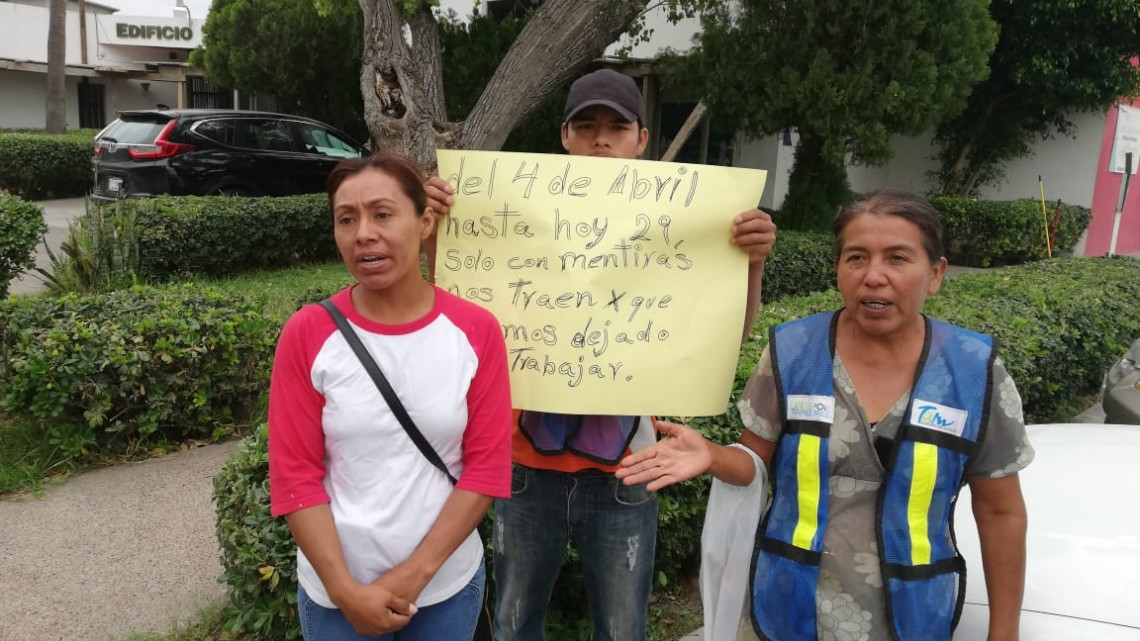 EDIFICIO
del 4 de Abril
hasta hoy 29
Solo con mentirás
nos Traen x que
mos dejado
Trabajar.
Tam